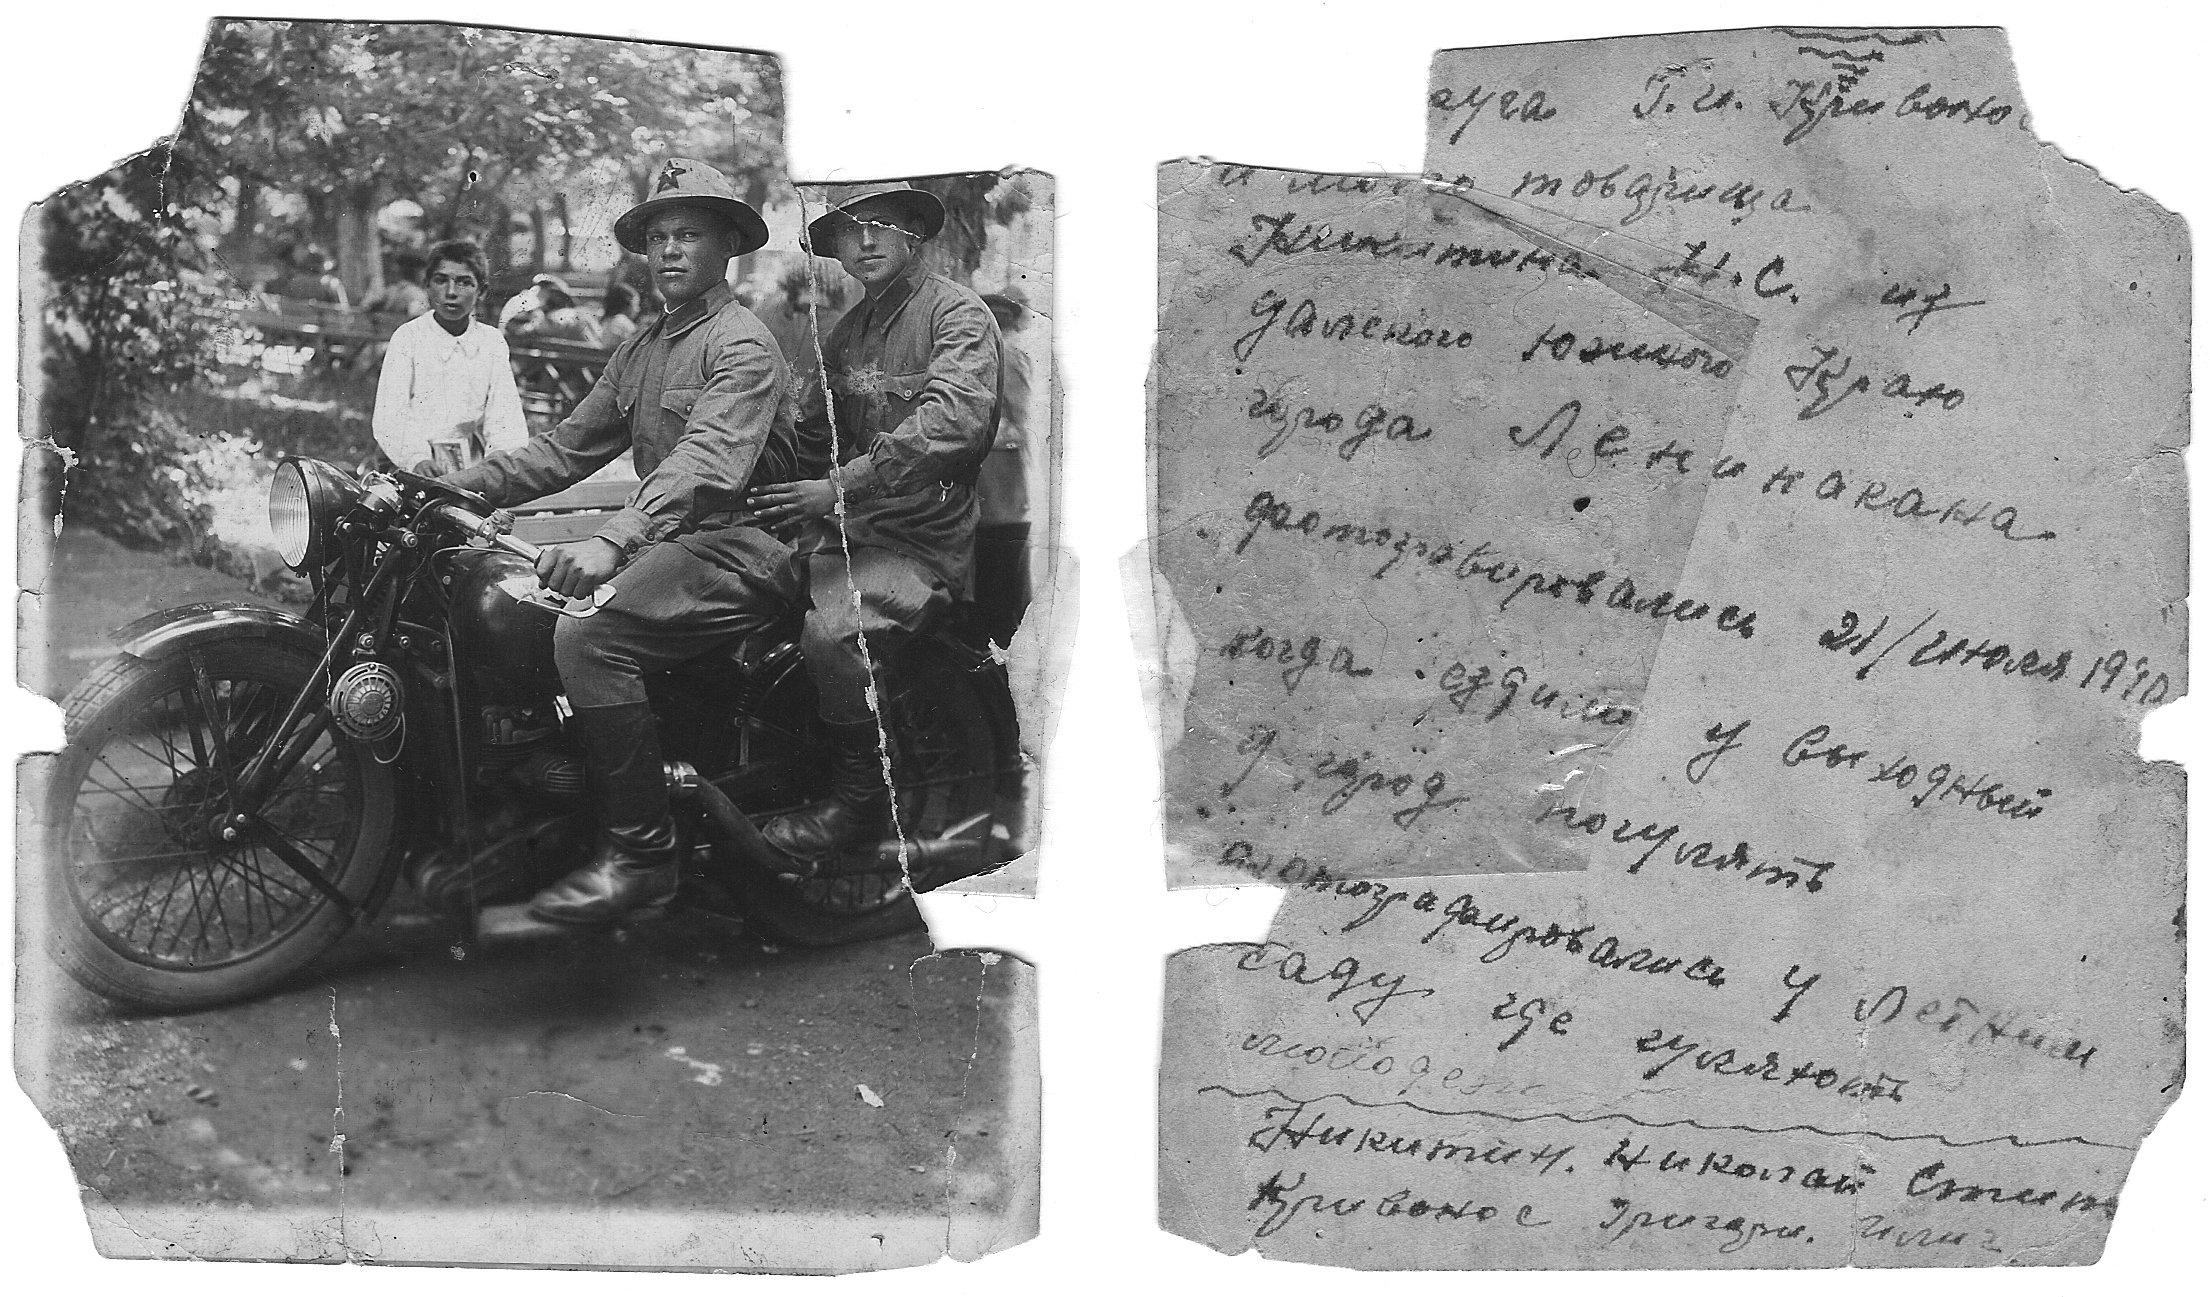 Г. И. Кривонос
и моего товарища
Никитина Н. С. из
далекого южного Краю
города Ленинакана
фотогравировались 21/июля 1940
когда ездили у выходный
у город погулять
а фотографировались у Летним
саду где гуляють
молодежи
Никитин. Николай
Кривонос Григори. Илич